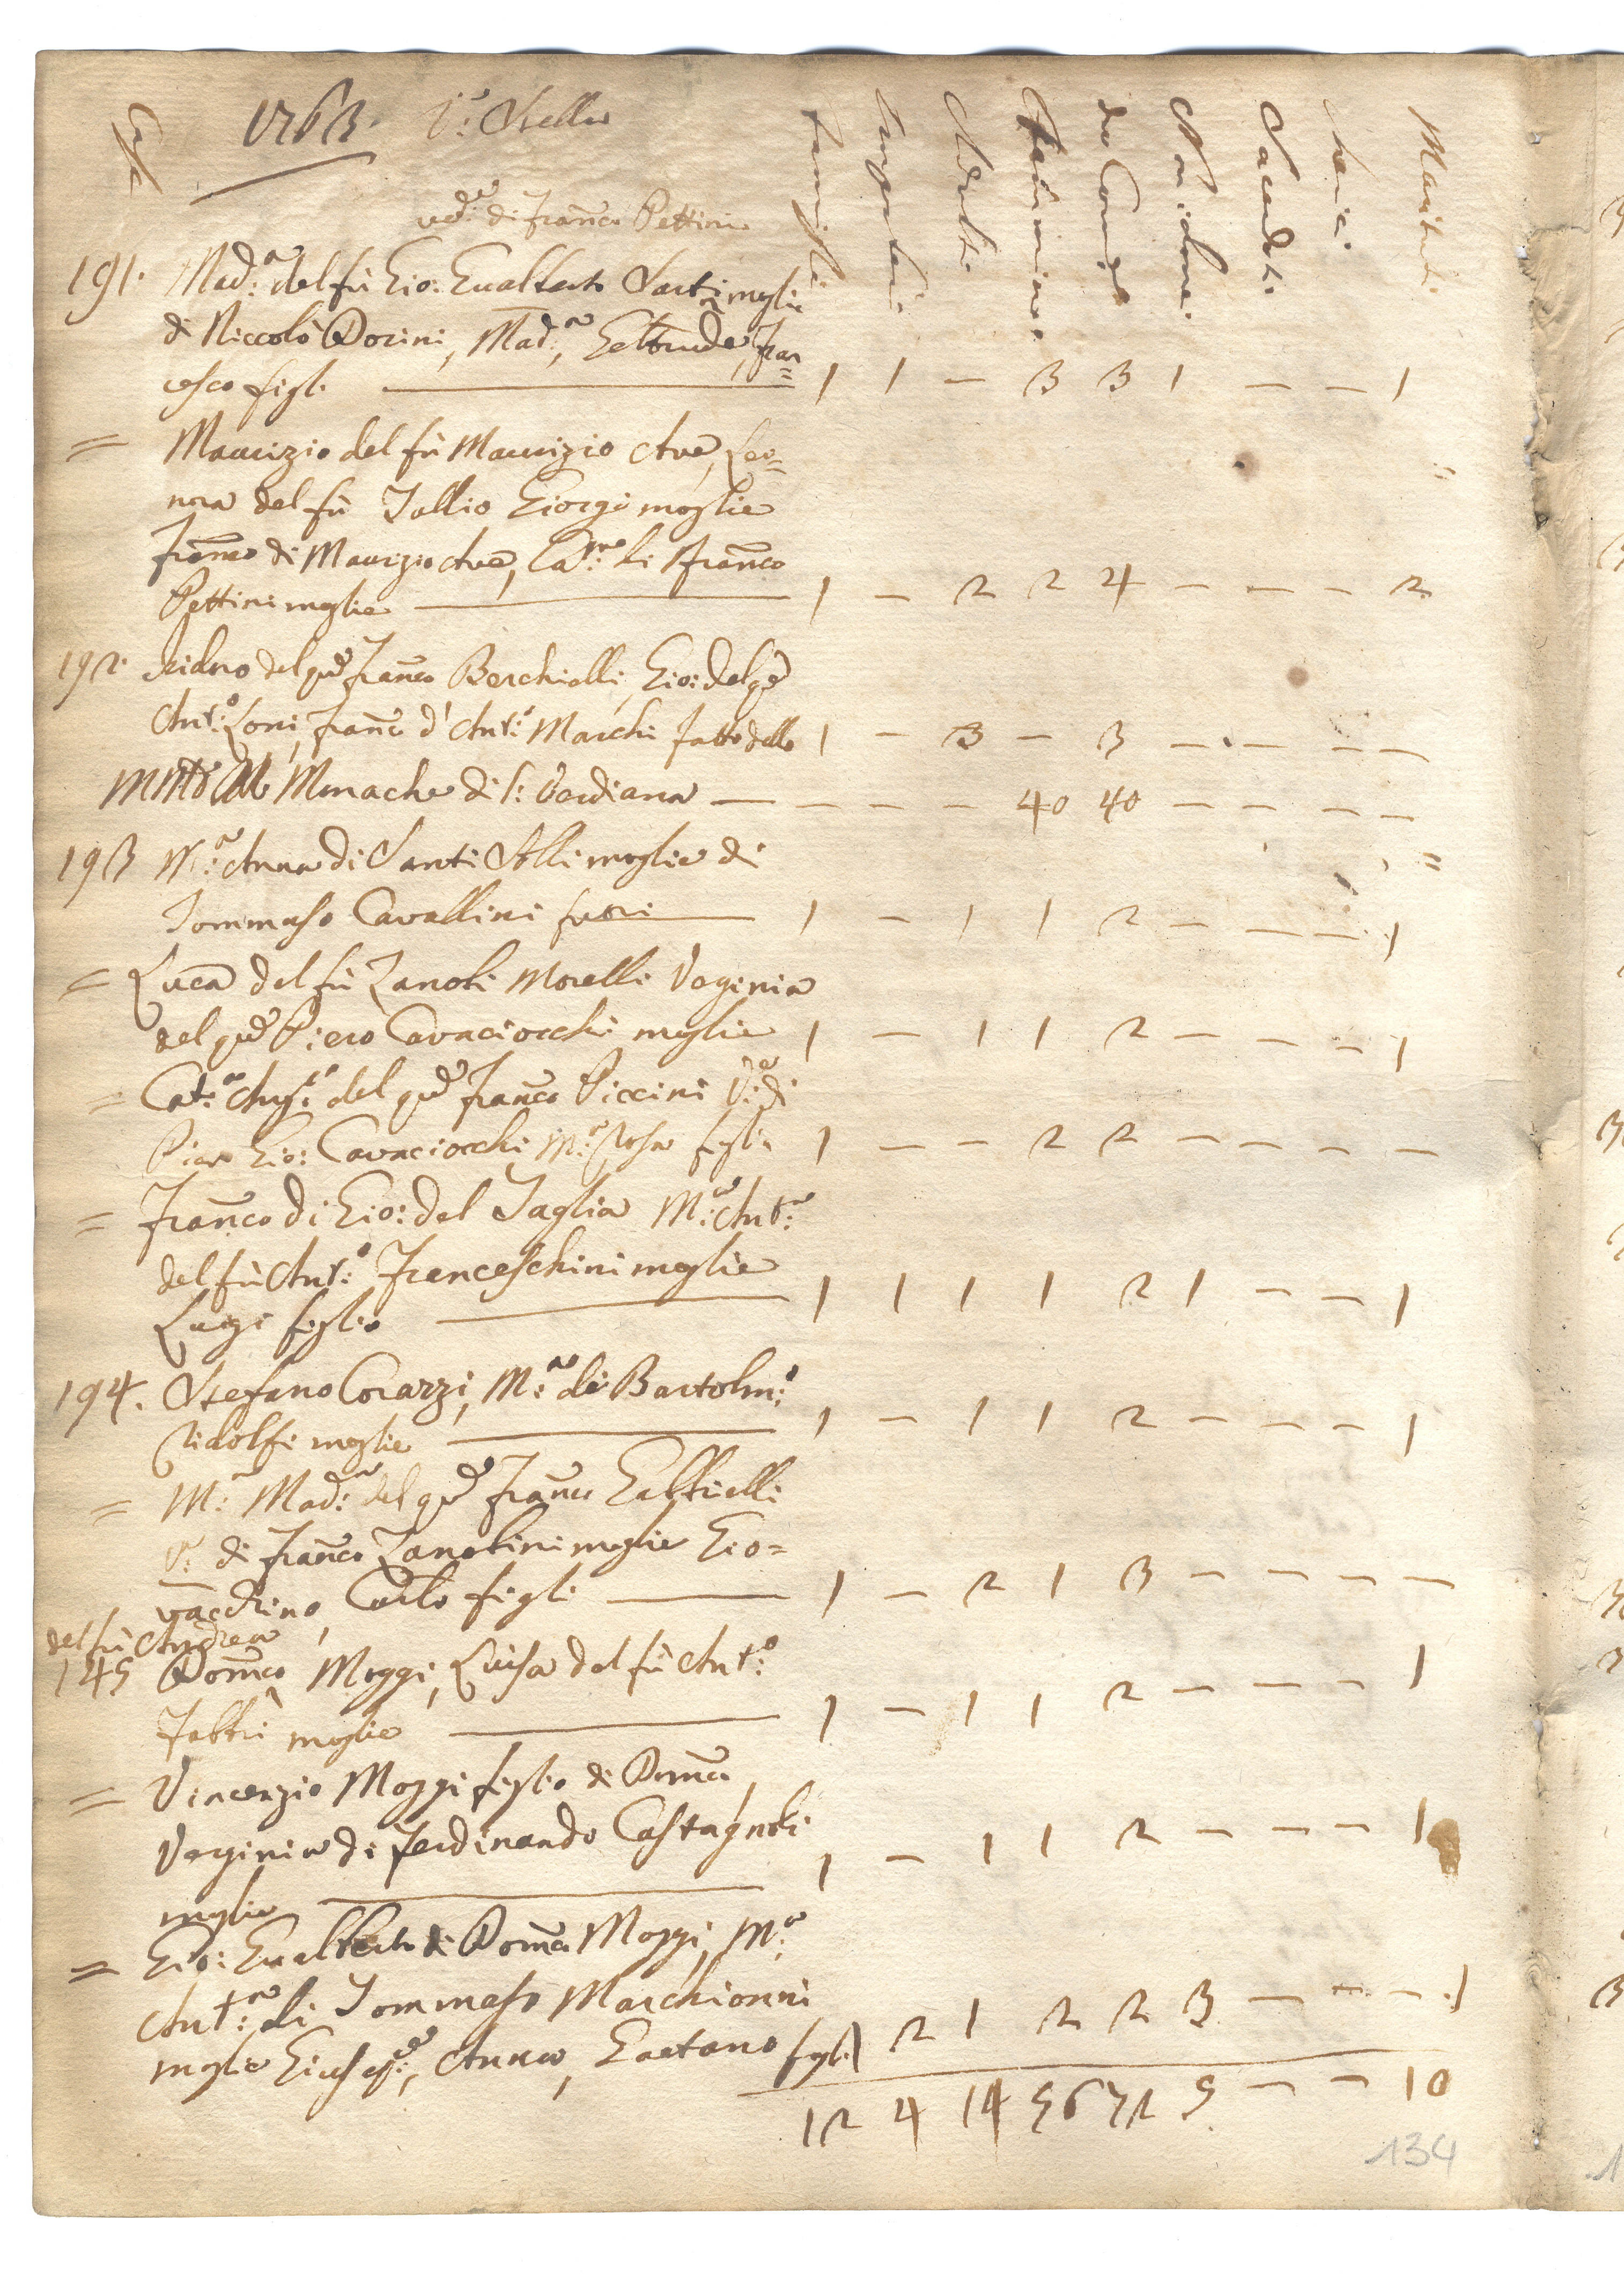 Case 1763. V:a Stella Famiglie Impuberi Adulti Femmine da Comun: Non idonei Sacerdoti Cherici Mariti
ved:a di Fran:co Pettini
191. Mad:a del fù Gio: Gualberto Sarti moglie
di Niccolò Dorini, Mad:a, Geltrude, Fran=
cesco figli 1 1 — 3 3 1 — — 1
= Maurizio del fù Maurizio Ave, Leo=
nora del fù Tallio Giorgi moglie
Fran:co di Maurizio Ave, Ca:na di Fran:co
Pettini moglie 1 — 2 2 4 — — — 2
192. Isidoro del q:m Fran:co Berchielli, Gio: del q:m
Ant:o Loni, Fran:co d'Ant:o Marchi Fatto delle 1 — 3 — 3 — — — —
Monache di S: Verdiana — — — — 40 40 — — — —
193 M:a Anna di Santi Solli moglie di
Tommaso Cavallini fuori 1 — 1 1 2 — — — 1
= Luca del fù Zanobi Morelli Verginia
del q:m Piero Cavaciocchi moglie 1 — 1 1 2 — — — 1
= Cat:a Aug:ta del q:m Fran:co Piccini V:a di
Pier Gio: Cavaciocchi M:a Rosa figlia 1 — — 2 2 — — — —
= Fran:co di Gio: del Taglia M:a Ant:a
del fù Ant:o Franceschini moglie
Luigi figlio 1 1 1 1 2 1 — — 1
194. Stefano Corazzi, M:a di Bartolm:o
Ridolfi moglie 1 — 1 1 2 — — — 1
= M:a Mad:a del q:m Fran:co Gabbrielli
V:a di Fran:co Zanobini moglie Gio=
vacchino, Carlo figli 1 — 2 1 3 — — — —
del fù Andrea
145 Dom:co Moggi, Luisa del fù Ant:o
Fabbri moglie 1 — 1 1 2 — — — 1
= Vincenzio Moggi figlio di Dom:co
Verginia di Ferdinando Castagnoli
moglie 1 — 1 1 2 — — — 1
= Gio: Gualberto di Dom:co Moggi, M:a
Ant:a di Tommaso Marchionni
moglie Gius:e, Anna, Gaetano figli 1 2 1 2 2 3 — — — 1
12 4 14 56 71 5 — — 10
134